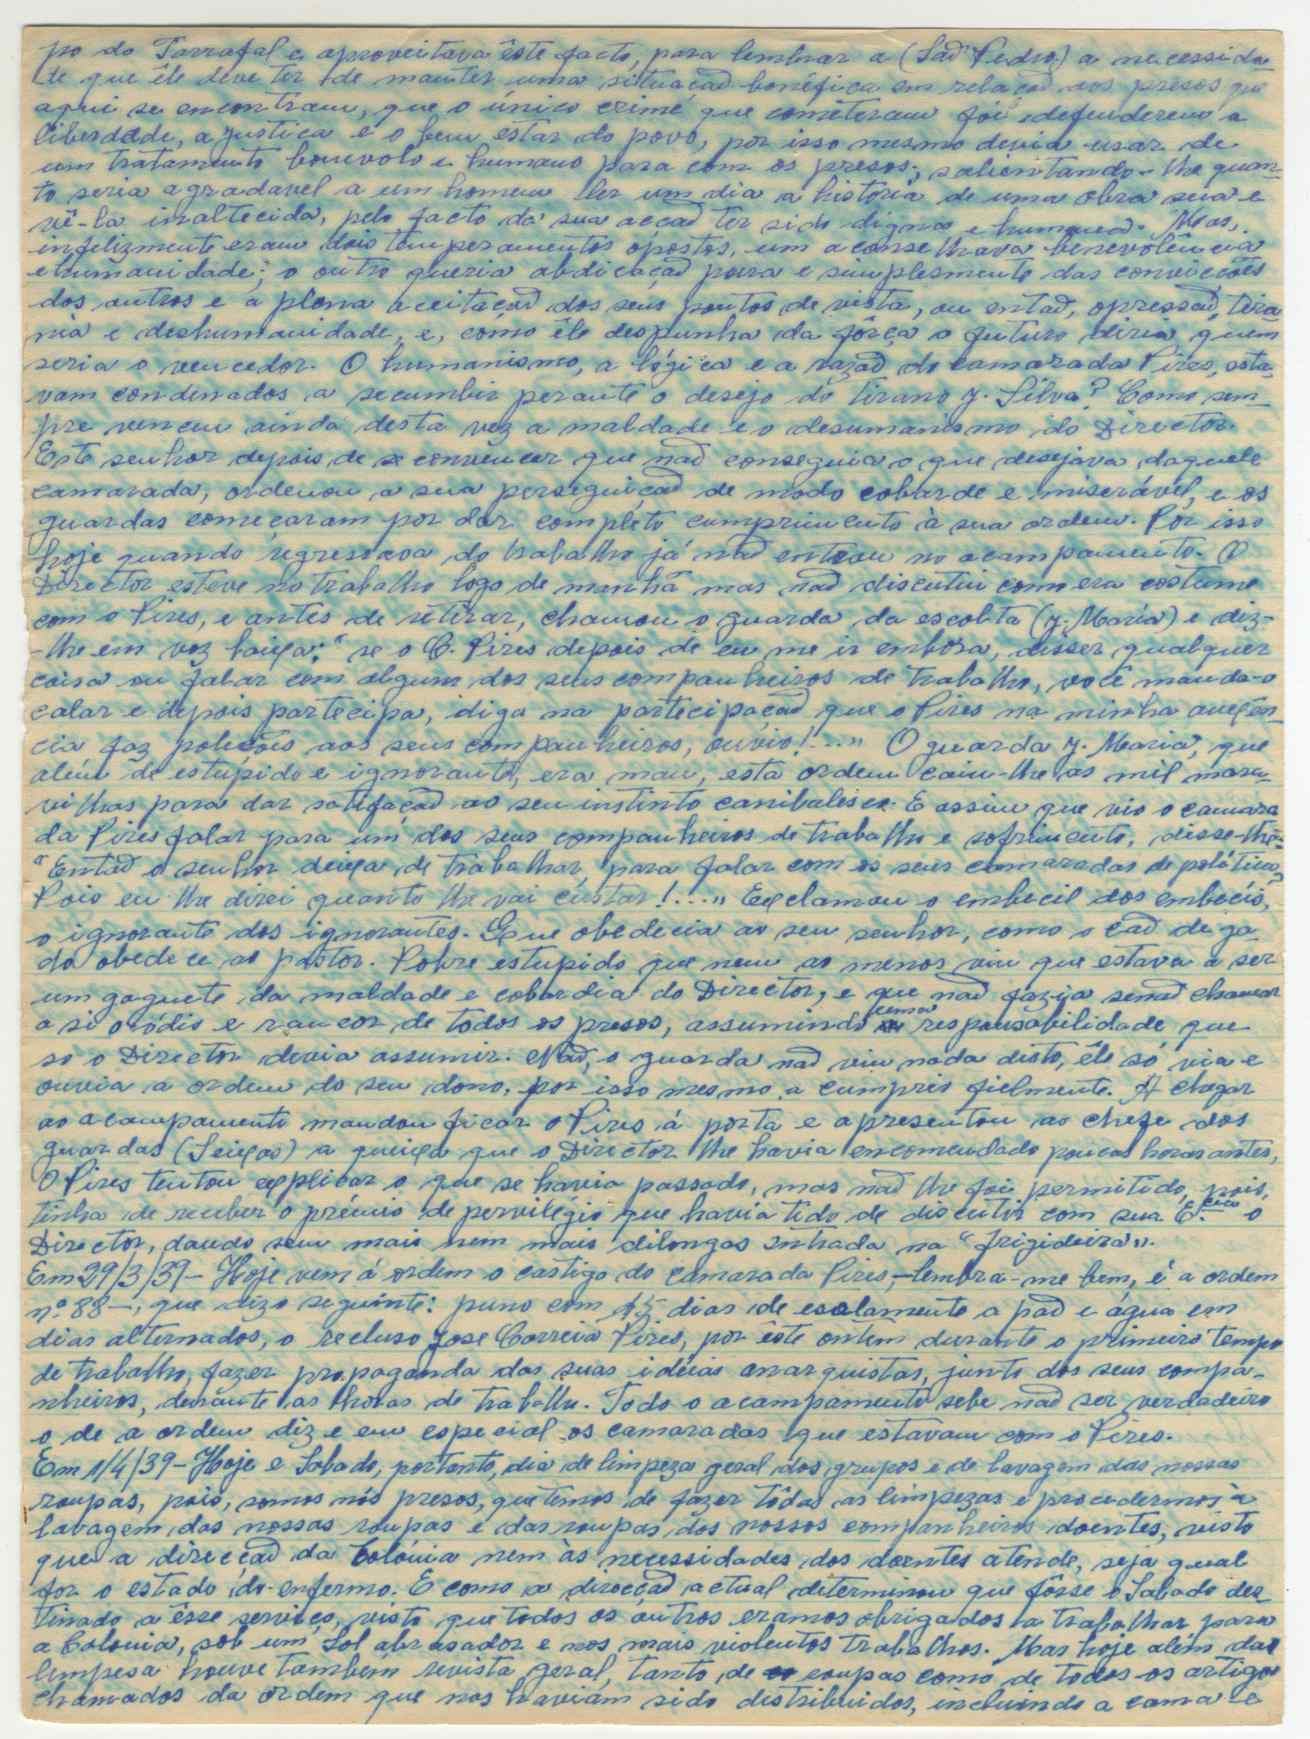 po do Tarrafal e, aproveitava êste facto, para lembrar a (São Pedro) a necessida-
de que êle deve ter de manter uma situação bonéfica em relação aos presos que
aqui se encontram, que o único crime que cometeram foi defenderem a
liberdade, a justiça e o bem estar do povo, por isso mesmo devia usar de
um tratamento bonvolo e humano para com os presos; salientando-lhe quan-
to seria agradavel a um homem ler um dia a história de uma obra sua e
vê-la inaltecida, pelo facto da sua acção ter sido digna e humana. Mas,
infelizmente eram dois temperamentos opostos, um aconselhava benevolência
e humanidade; o outro queria abdicação pura e simplesmente das convicções
dos outros e a plena aceitação dos seus pontos de vista, ou então, opressão, tira
nia e deshumanidade, e, como êle despunha da fôrça o futuro diria, quem
seria o vencedor. O humanismo, a lógica e a razão do camarada Pires, esta-
vam condenados a secumbir perante o desejo do tirano J. Silva? Como sem-
pre venceu ainda desta vez a maldade e o desumanismo do Director.
Este senhor depois de se convencer que não conseguia o que desejava daquele
camarada, ordenou a sua perseguição de modo cobarde e miserável, e os
guardas começaram por dar completo cumprimento à sua ordem. Por isso
hoje quando regressava do trabalho já não entrou no acampamento. O
Director esteve no trabalho logo de manhã mas não discutiu como era costume
com o Pires, e antes de retirar, chamou o guarda da escolta (J. Maria) e diz-
-lhe em voz baixa: "se o C. Pires depois de eu me ir embora, disser qualquer
coisa ou falar com algum dos seus companheiros de trabalho, você manda-o
calar e depois partecipa, diga na partecipação que o Pires na minha auçên-
cia faz poleções aos seus companheiros, ouvio!..." O guarda J. Maria, que
além de estúpido e ignorante, era mau, esta ordem caiu-lhe às mil mara-
vilhas para dar satifação ao seu instinto canibalesco. E assim que vio o camara
da Pires falar para um dos seus companheiros de trabalho e sofrimento, disse-lhe-
"Então o senhor deixa de trabalhar, para falar com os seus camaradas de política?
Pois eu lhe direi quanto lhe vai custar!..." Exclamou o embecil dos embecis,
o ignorante dos ignorantes. Que obedecia ao seu senhor, como o cão de ga-
do obedece ao pastor. Pobre estupido que nem ao menos viu que estava a ser
um joguete da maldade e cobardia do Director, e que não fazia senão chamar
a si o ódio e rancor de todos os presos, assumindo uma responsabilidade que
so o Director devia assumir. Não, o guarda não viu nada disto, êle só via e
ouvia a ordem do seu dono, por isso mesmo a cumpris fielmente. A chegar
ao acampamento mandou ficar o Pires á porta e apresentou ao chefe dos
guardas (Seixas) a queixa que o Director lhe havia encomendado poucas horas antes,
O Pires tentou explicar o que se havia passado, mas não lhe foi permitido, pois,
tinha de receber o prémio de pervilégio que havia tido de discutir com sua E.cia o
Director, dando sem mais nem mais dilongas intrada na "frigideira".
Em 29/3/39 - Hoje vem á ordem o castigo do camarada Pires, - lembra-me bem, é a ordem
nº 88 -, que diz o seguinte: puno com 15 dias de esolamento a pão e água em
dias alternados, o recluso Jose Correia Pires, por êste ontem durante o primeiro tempo
de trabalho, fazer propaganda das suas idéias anarquistas, junto dos seus compa-
nheiros, durante as horas de trabalho. Todo o acampamento sebe não ser verdadeiro
o de a ordem diz e em especial os camaradas que estavam com o Pires.
Em 1/4/39 - Hoje e Sabado, portanto, dia de limpeza geral dos grupos e de lavagem das nossas
roupas, pois, somos nós presos, que temos de fazer tôdas as limpezas e procedermos à
lavagem das nossas roupas e das roupas dos nossos companheiros doentes, visto
que a direcção da Colónia nem às necessidades dos doentes atende, seja qual
for o estado do enfermo. E como a direcção actual determinou que fôsse o Sabado des-
tinado a êsse serviço, visto que todos os outros eramos obrigados a trabalhar para
a Colonia, sob um Sol abrasador e nos mais violentos trabalhos. Mas hoje além da
limpesa houve tambem revista geral, tanto de roupas como de todos os artigos
chamados da ordem que nos haviam sido distribuidos, incluindo a cama e